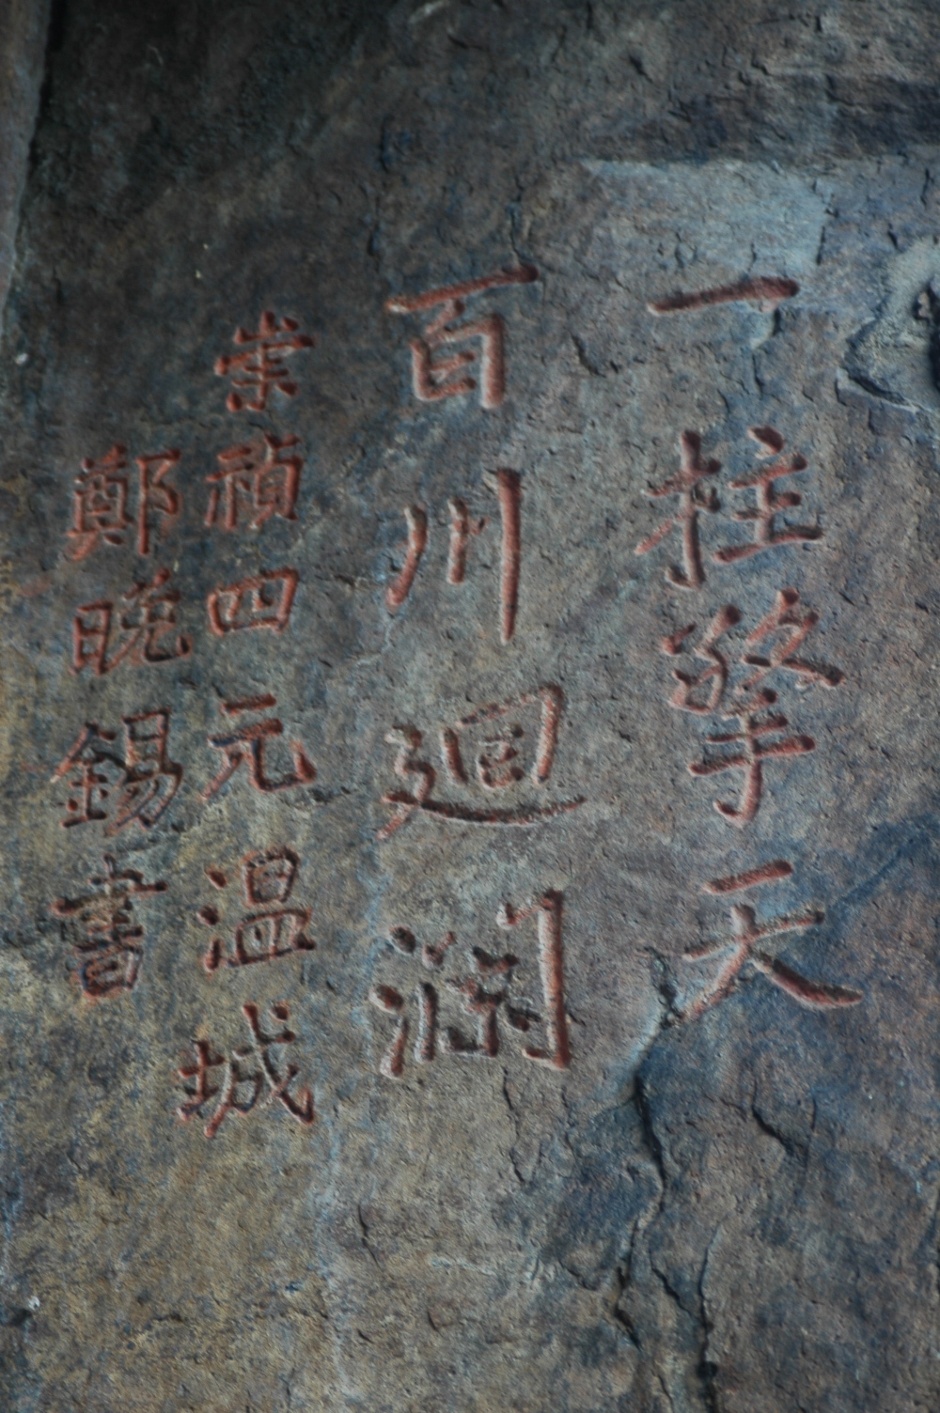 一柱擎天
百川迴瀾
崇禎四元温城
鄭晚錫書